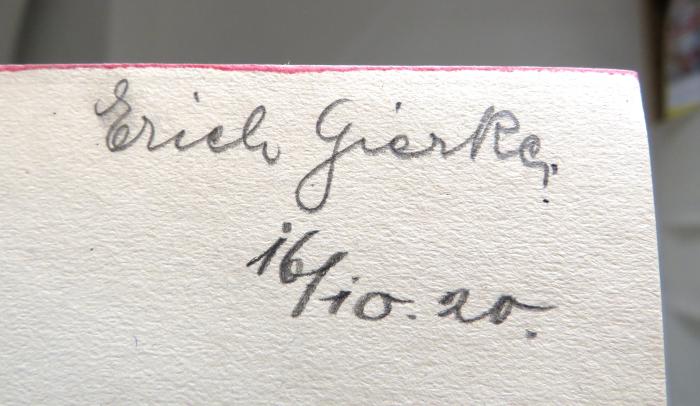 Erich Gierke,
16/10.20.